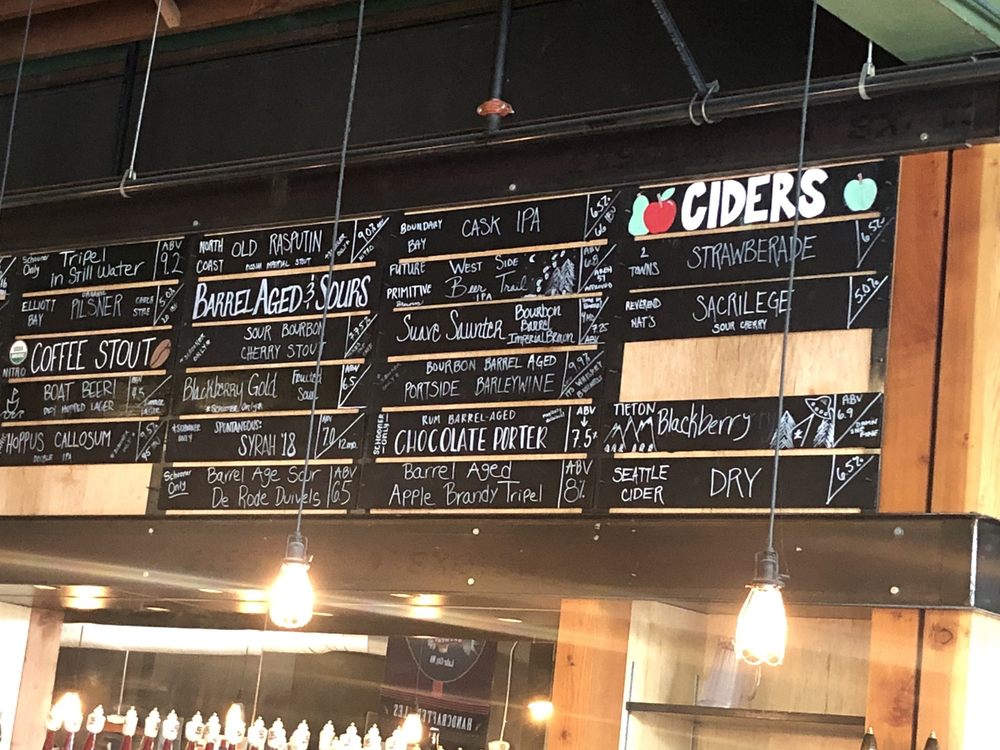 Schooner
Only
Tripel
in Still Water
ABV
9.2
ELLIOTT
BAY
ORGANIC
PILSNER
NITRO
COFFEE STOUT
BOAT BEER!
DRY HOPPED LAGER
HOPPUS CALLOSUM
DOUBLE IPA
NORTH
COAST
OLD RASPUTIN
RUSSIAN IMPERIAL STOUT
BARREL AGED & SOURS
SOUR BOURBON
CHERRY STOUT
Blackberry Gold
Fruited
Sour
*SCHOONER ONLY*
ABV
6.5
*SCHOONER
ONLY
SPONTANEOUS:
SYRAH '18
ABV
7.0
12oz.
Schooner
Only
Barrel Age Sour
De Rode Duivels
ABV
6.5
BOUNDARY
BAY
CASK IPA
6.5%
FUTURE
PRIMITIVE
West Side
Beer Trail
IPA
ABV
6.8
Suave Saunter
Bourbon
Barrel
Imperial Brown
BOURBON BARREL AGED
PORTSIDE BARLEYWINE
9.9%
SCHOONER
ONLY
RUM BARREL-AGED
CHOCOLATE PORTER
ABV
7.5%
Barrel Aged
Apple Brandy Tripel
ABV
8%
CIDERS
2
TOWNS
STRAWBERADE
6.5%
REVEREND
NAT'S
SACRILEGE
SOUR CHERRY
5.0%
TIETON
Blackberry
ABV
6.9
DAMN
FINE
SEATTLE
CIDER
DRY
6.5%